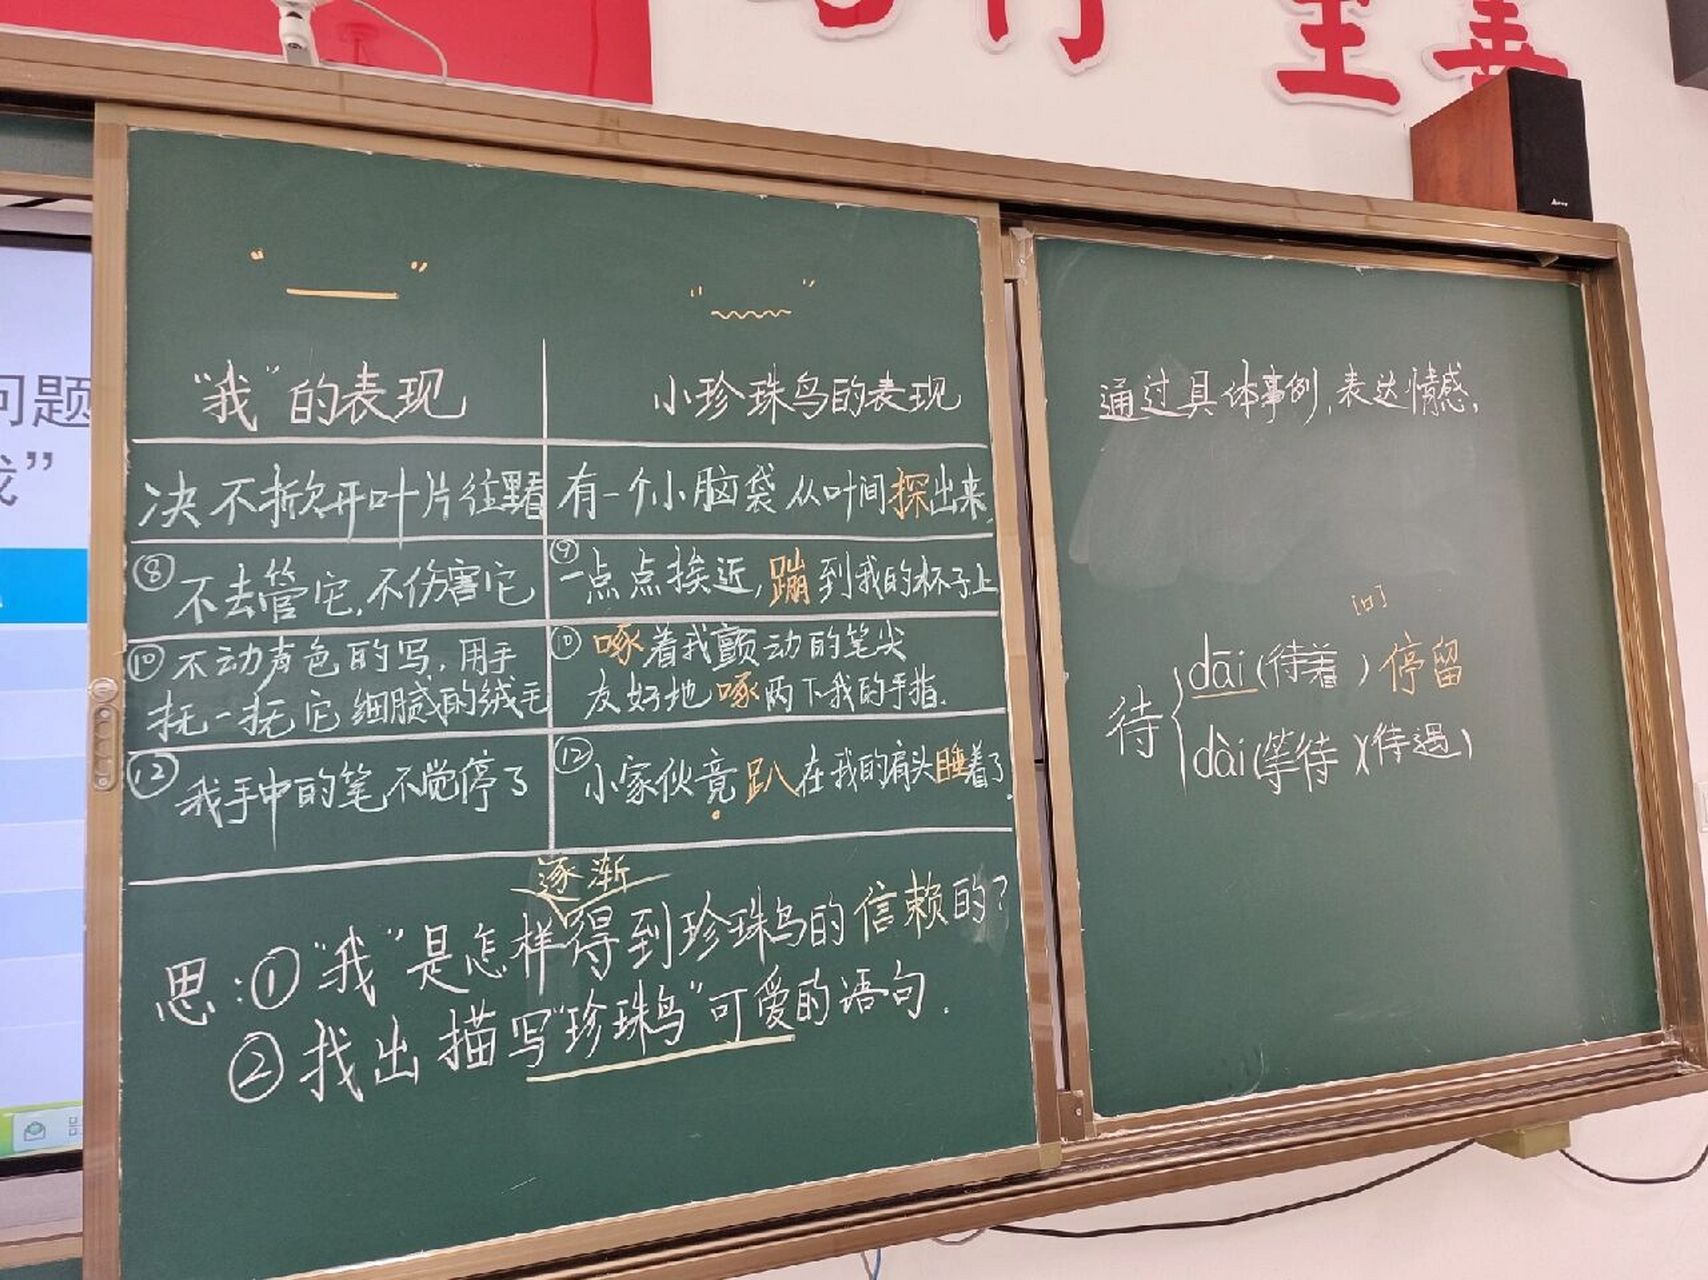 问题
”
“ ”
“ ”
“我”的表现
小珍珠鸟的表现
决不掀开叶片往里看
有一个小脑袋从叶间探出来.
⑧不去管它,不伤害它
⑨一点点挨近,蹦到我的杯子上
⑩不动声色的写,用手
抚一抚它细腻的绒毛
⑩啄着我颤动的笔尖
友好地啄两下我的手指.
⑫我手中的笔不觉停了
⑫小家伙竟趴在我的肩头睡着了.
逐渐
思:①“我”是怎样得到珍珠鸟的信赖的?
②找出描写“珍珠鸟”可爱的语句.
通过具体事例,表达情感,
[口]
待
dāi(待着)停留
dài(等待)(待遇)